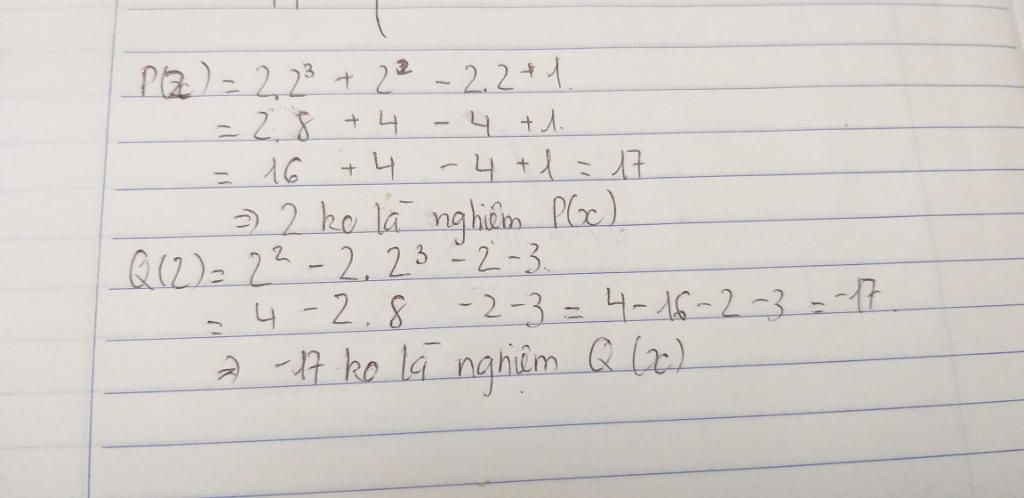 P(2) = 2.2³ + 2² - 2.2 + 1.
= 2.8 + 4 - 4 + 1.
= 16 + 4 - 4 + 1 = 17
⇒ 2 ko là nghiệm P(x)
Q(2) = 2² - 2.2³ - 2 - 3.
= 4 - 2.8 - 2 - 3 = 4 - 16 - 2 - 3 = -17.
⇒ -17 ko là nghiệm Q(x)